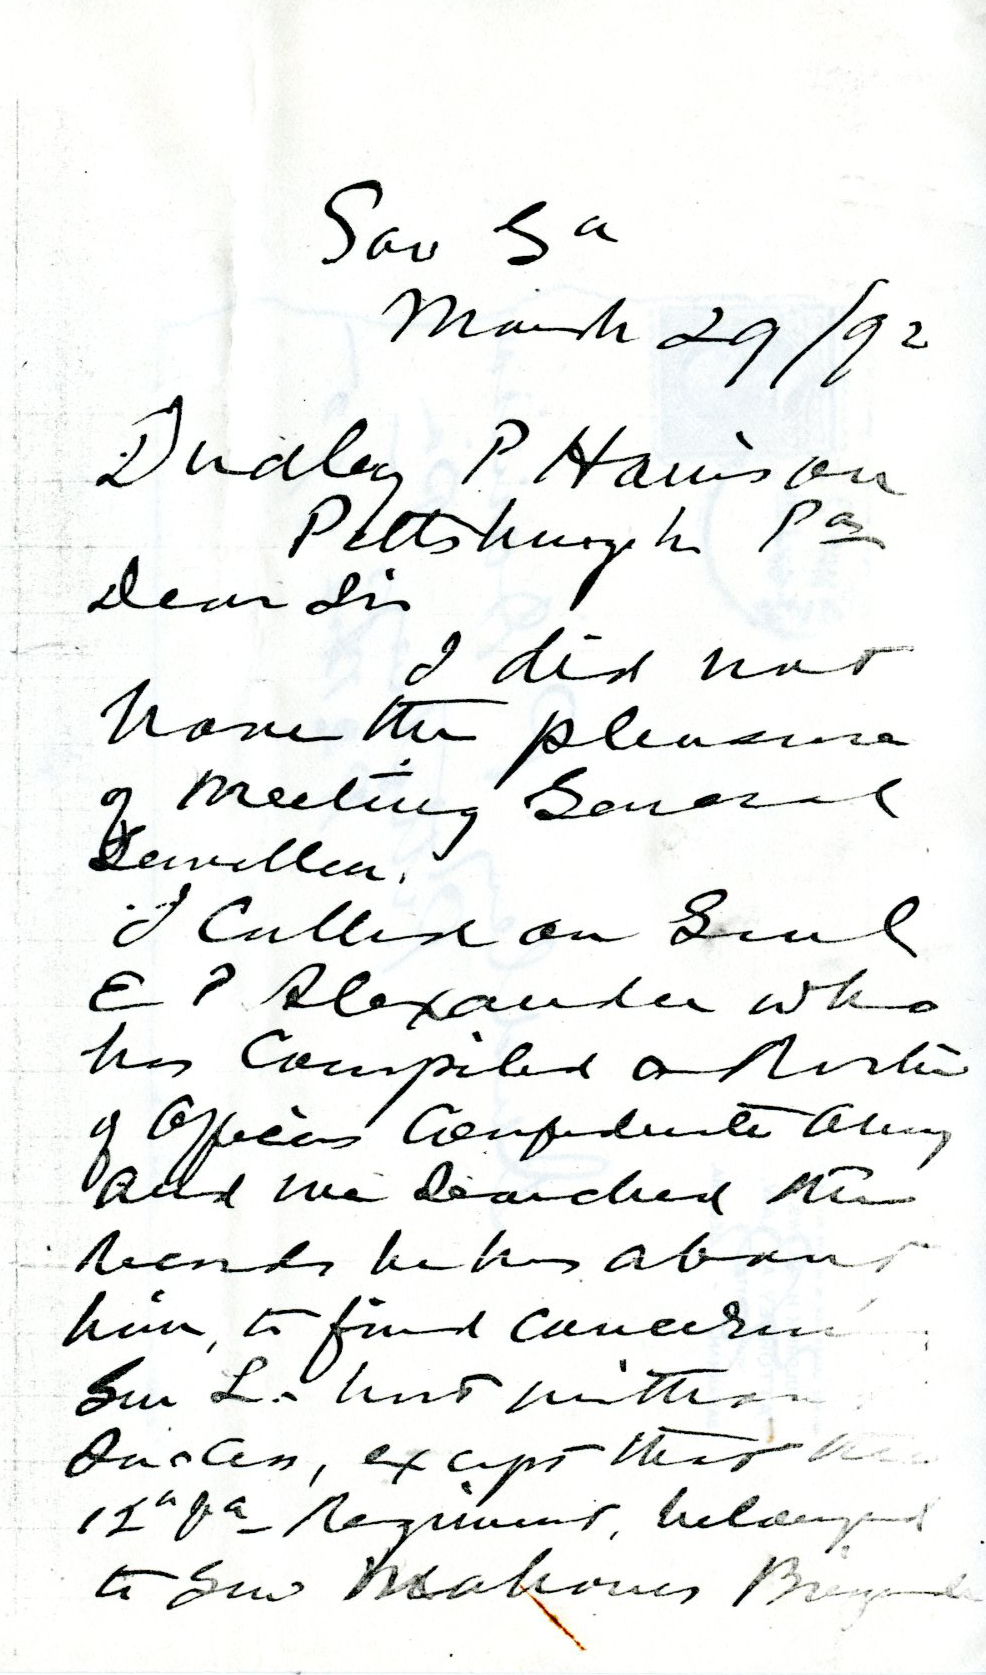 Sav Ga
March 29/92
Dudley P Harrison
Pittsburgh Pa
Dear Sir
I did not
have the pleasure
of meeting General
Lewellen.
I Called on Genl
E P Alexander who
has Compiled a Roster
of Officers Confederate Army
And we Searched the
records he has about
him, to find concerning
Gen L. but without
Success, except that the
12th Va Regiment, belonged
to Gen Mahones Brigade